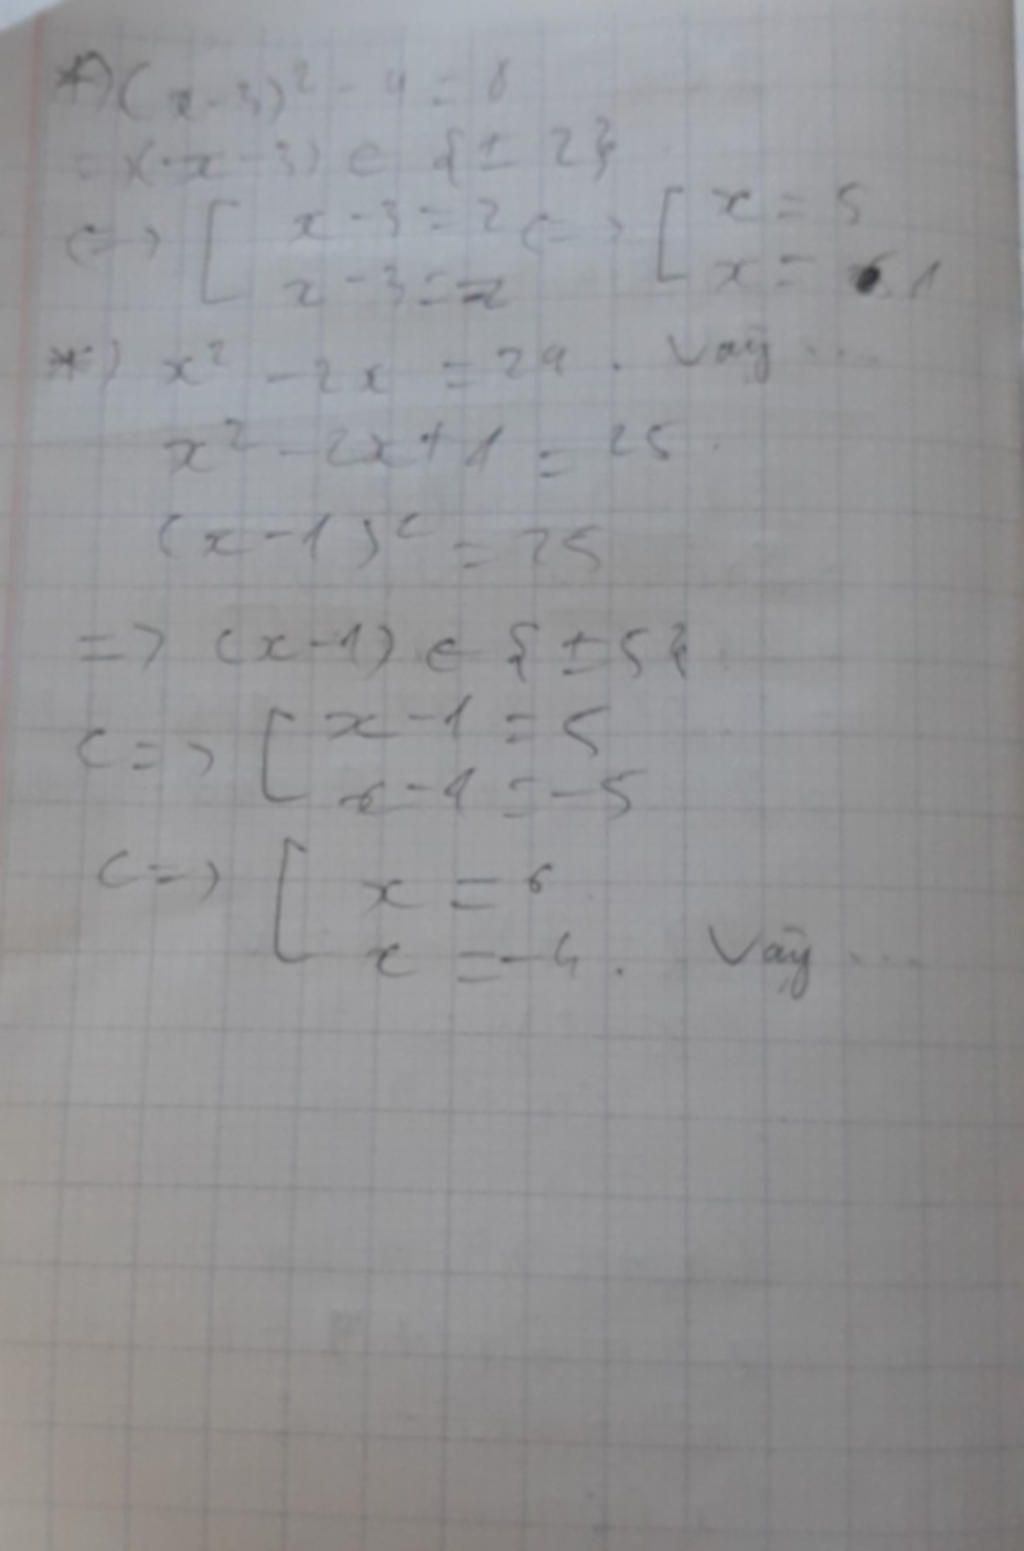 *) (x-3)² - 4 = 0
=> (x-3) ∈ {± 2}
<=> [ x-3=2 <=> [ x = 5
x-3=-2 x = 1
*) x² - 2x = 24. Vậy ...
x² - 2x + 1 = 25.
(x-1)² = 25
=> (x-1) ∈ {±5}
<=> [ x-1 = 5
x-1 = -5
<=> [ x = 6
x = -4. Vậy ...